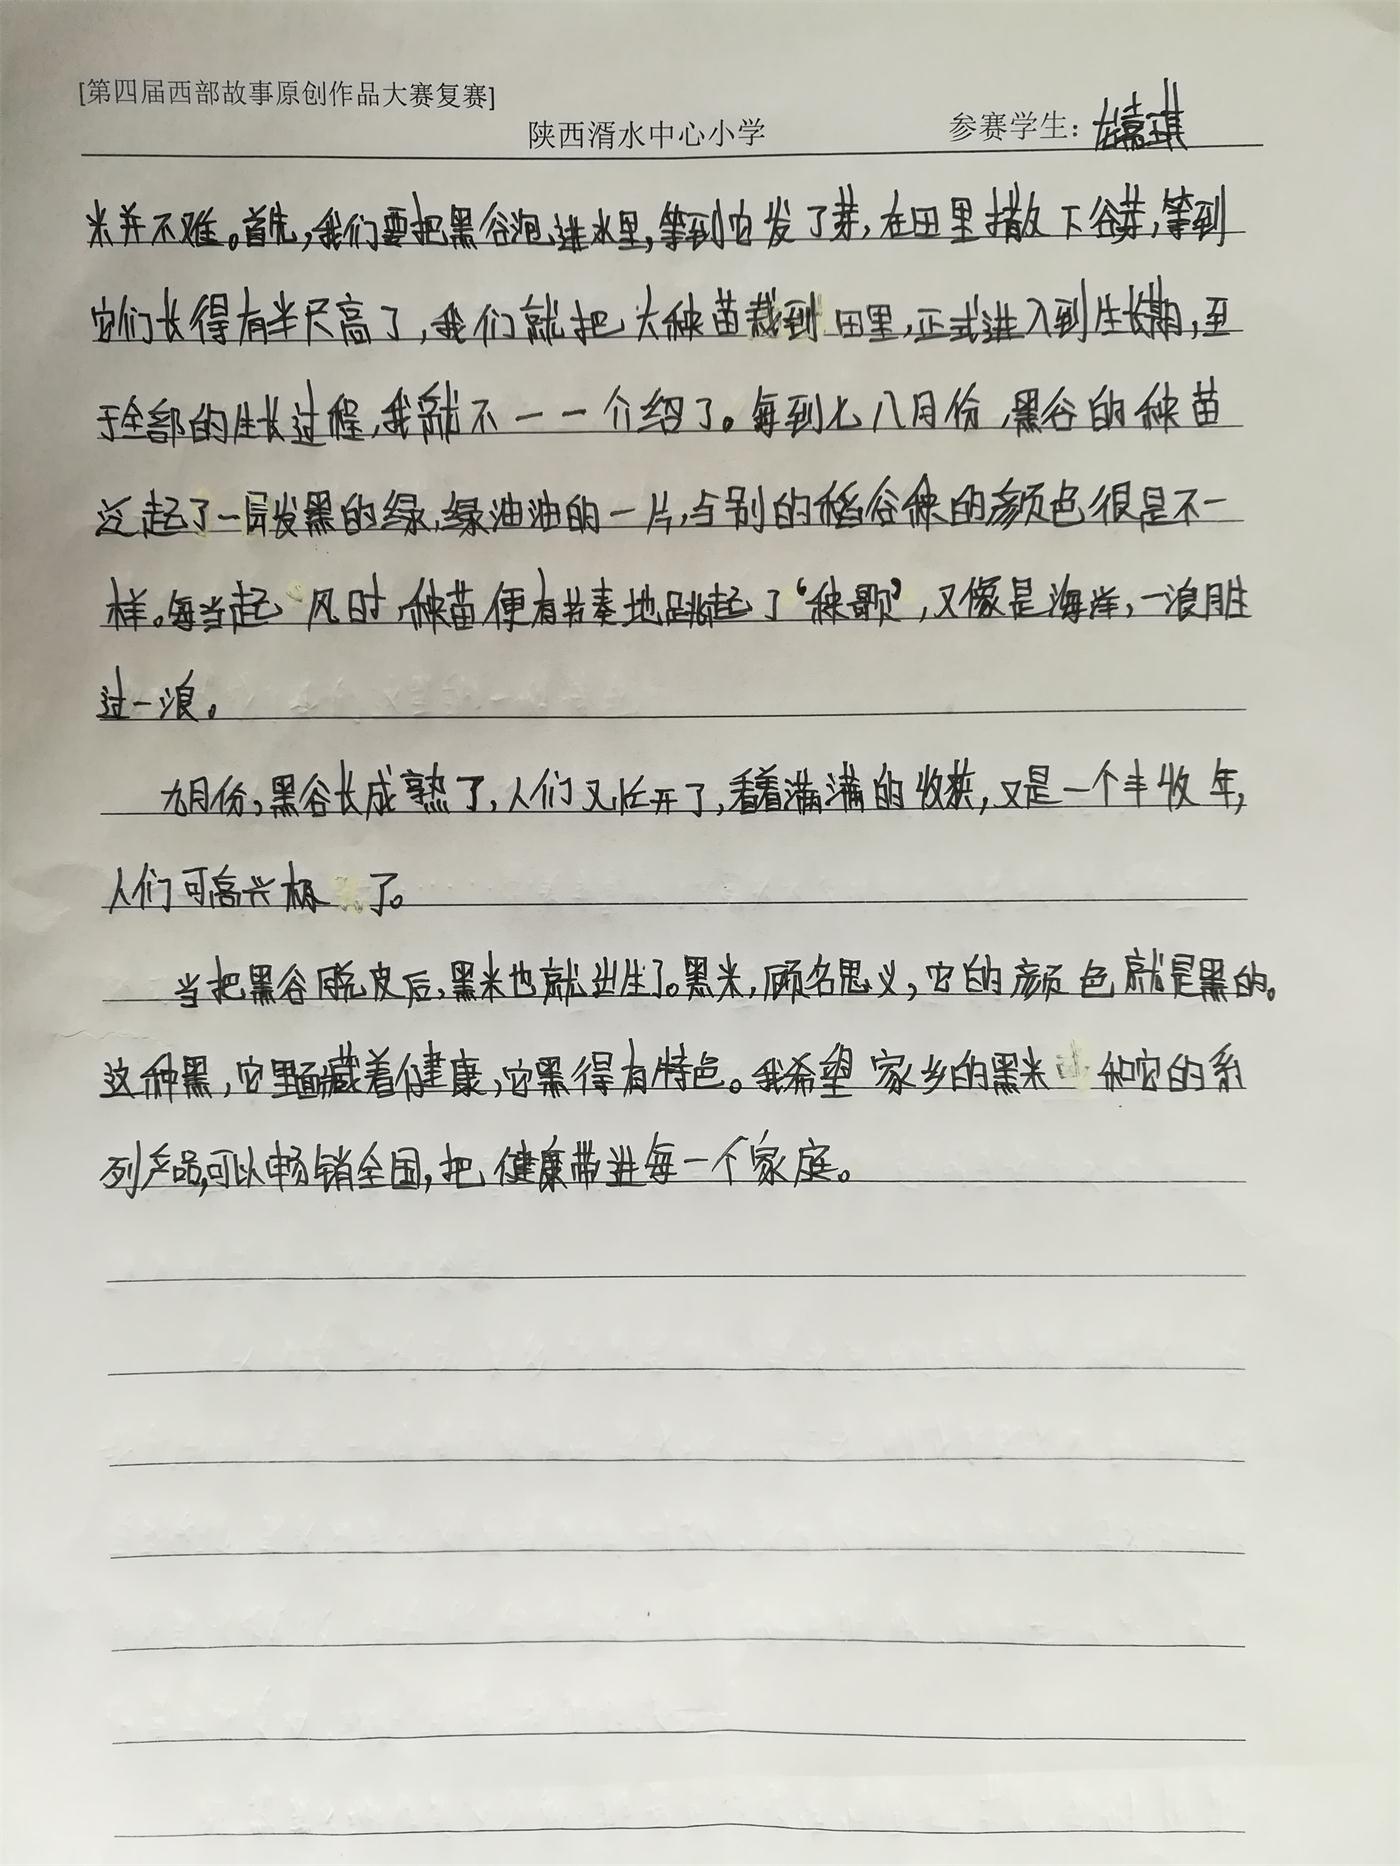 [第四届西部故事原创作品大赛复赛]
陕西湑水中心小学 参赛学生：龙嘉琪
米并不难。首先，我们要把黑谷泡进水里，等到它发了芽，在田里撒下谷芽，等到
它们长得有半尺高了，我们就把大秧苗栽到田里，正式进入到生长期，至
于全部的生长过程，我就不一一介绍了。每到七八月份，黑谷的秧苗
泛起了一层发黑的绿，绿油油的一片，与别的稻谷秧的颜色很是不一
样。每当起风时，秧苗便有节奏地跳起了“秧歌”，又像是海洋，一浪胜
过一浪。
九月份，黑谷长成熟了，人们又忙开了，看着满满的收获，又是一个丰收年，
人们可高兴极了。
当把黑谷脱皮后，黑米也就出生了。黑米，顾名思义，它的颜色就是黑的。
这种黑，它里面藏着健康，它黑得有特色。我希望家乡的黑米和它的系
列产品，可以畅销全国，把健康带进每一个家庭。